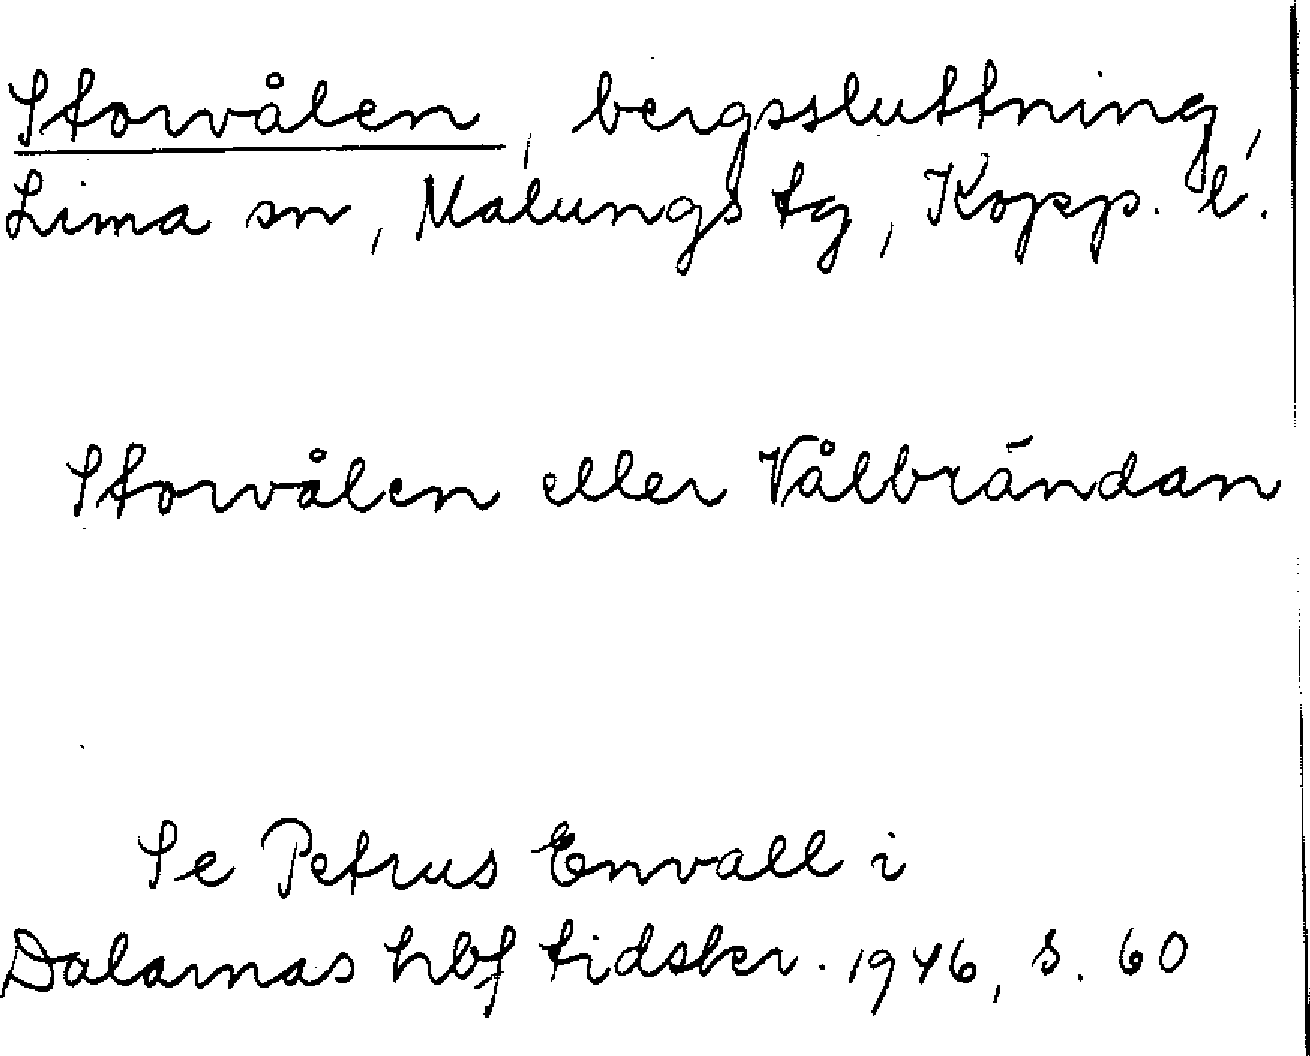 Storvålen, bergssluttning,
Lima sn, Malungs tg, Kopp. l.
Storvålen eller Vålbrändan
Se Petrus Envall i
Dalarnas hbf tidskr. 1946, s. 60